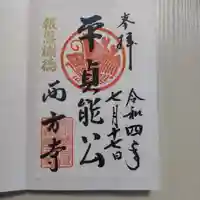 奉拝
令和四年
七月十七日
平貞能公
西方寺